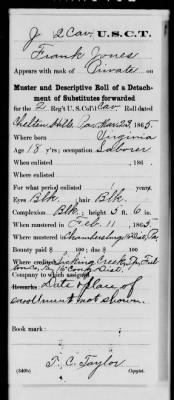 J 2 Cav. U.S.C.T.
Frank Jones
Appears with rank of Private on
Muster and Descriptive Roll of a Detach-
ment of Substitutes forwarded
for the 2 Reg't U.S. Col'd Cav. Roll dated
Chelten Hills, Pa. Mar 23, 1865.
Where born Virginia
Age 18 y'rs; occupation Laborer
When enlisted , 186 .
Where enlisted
For what period enlisted years.
Eyes Blk. ; hair Blk.
Complexion Blk. ; height 5 ft. 6 in.
When mustered in Feb. 11, 1865
Where mustered in Chambersburg Pa.
Bounty paid $ 100; due $ 100
Where credited Licking Creek, Tp. Ful-
ton Co. Pa. 16 Cong. Dist.
Company to which assigned
Remarks: Date & place of
enrollment not shown.
Book mark:
T. C. Taylor
(340b) Copyist.